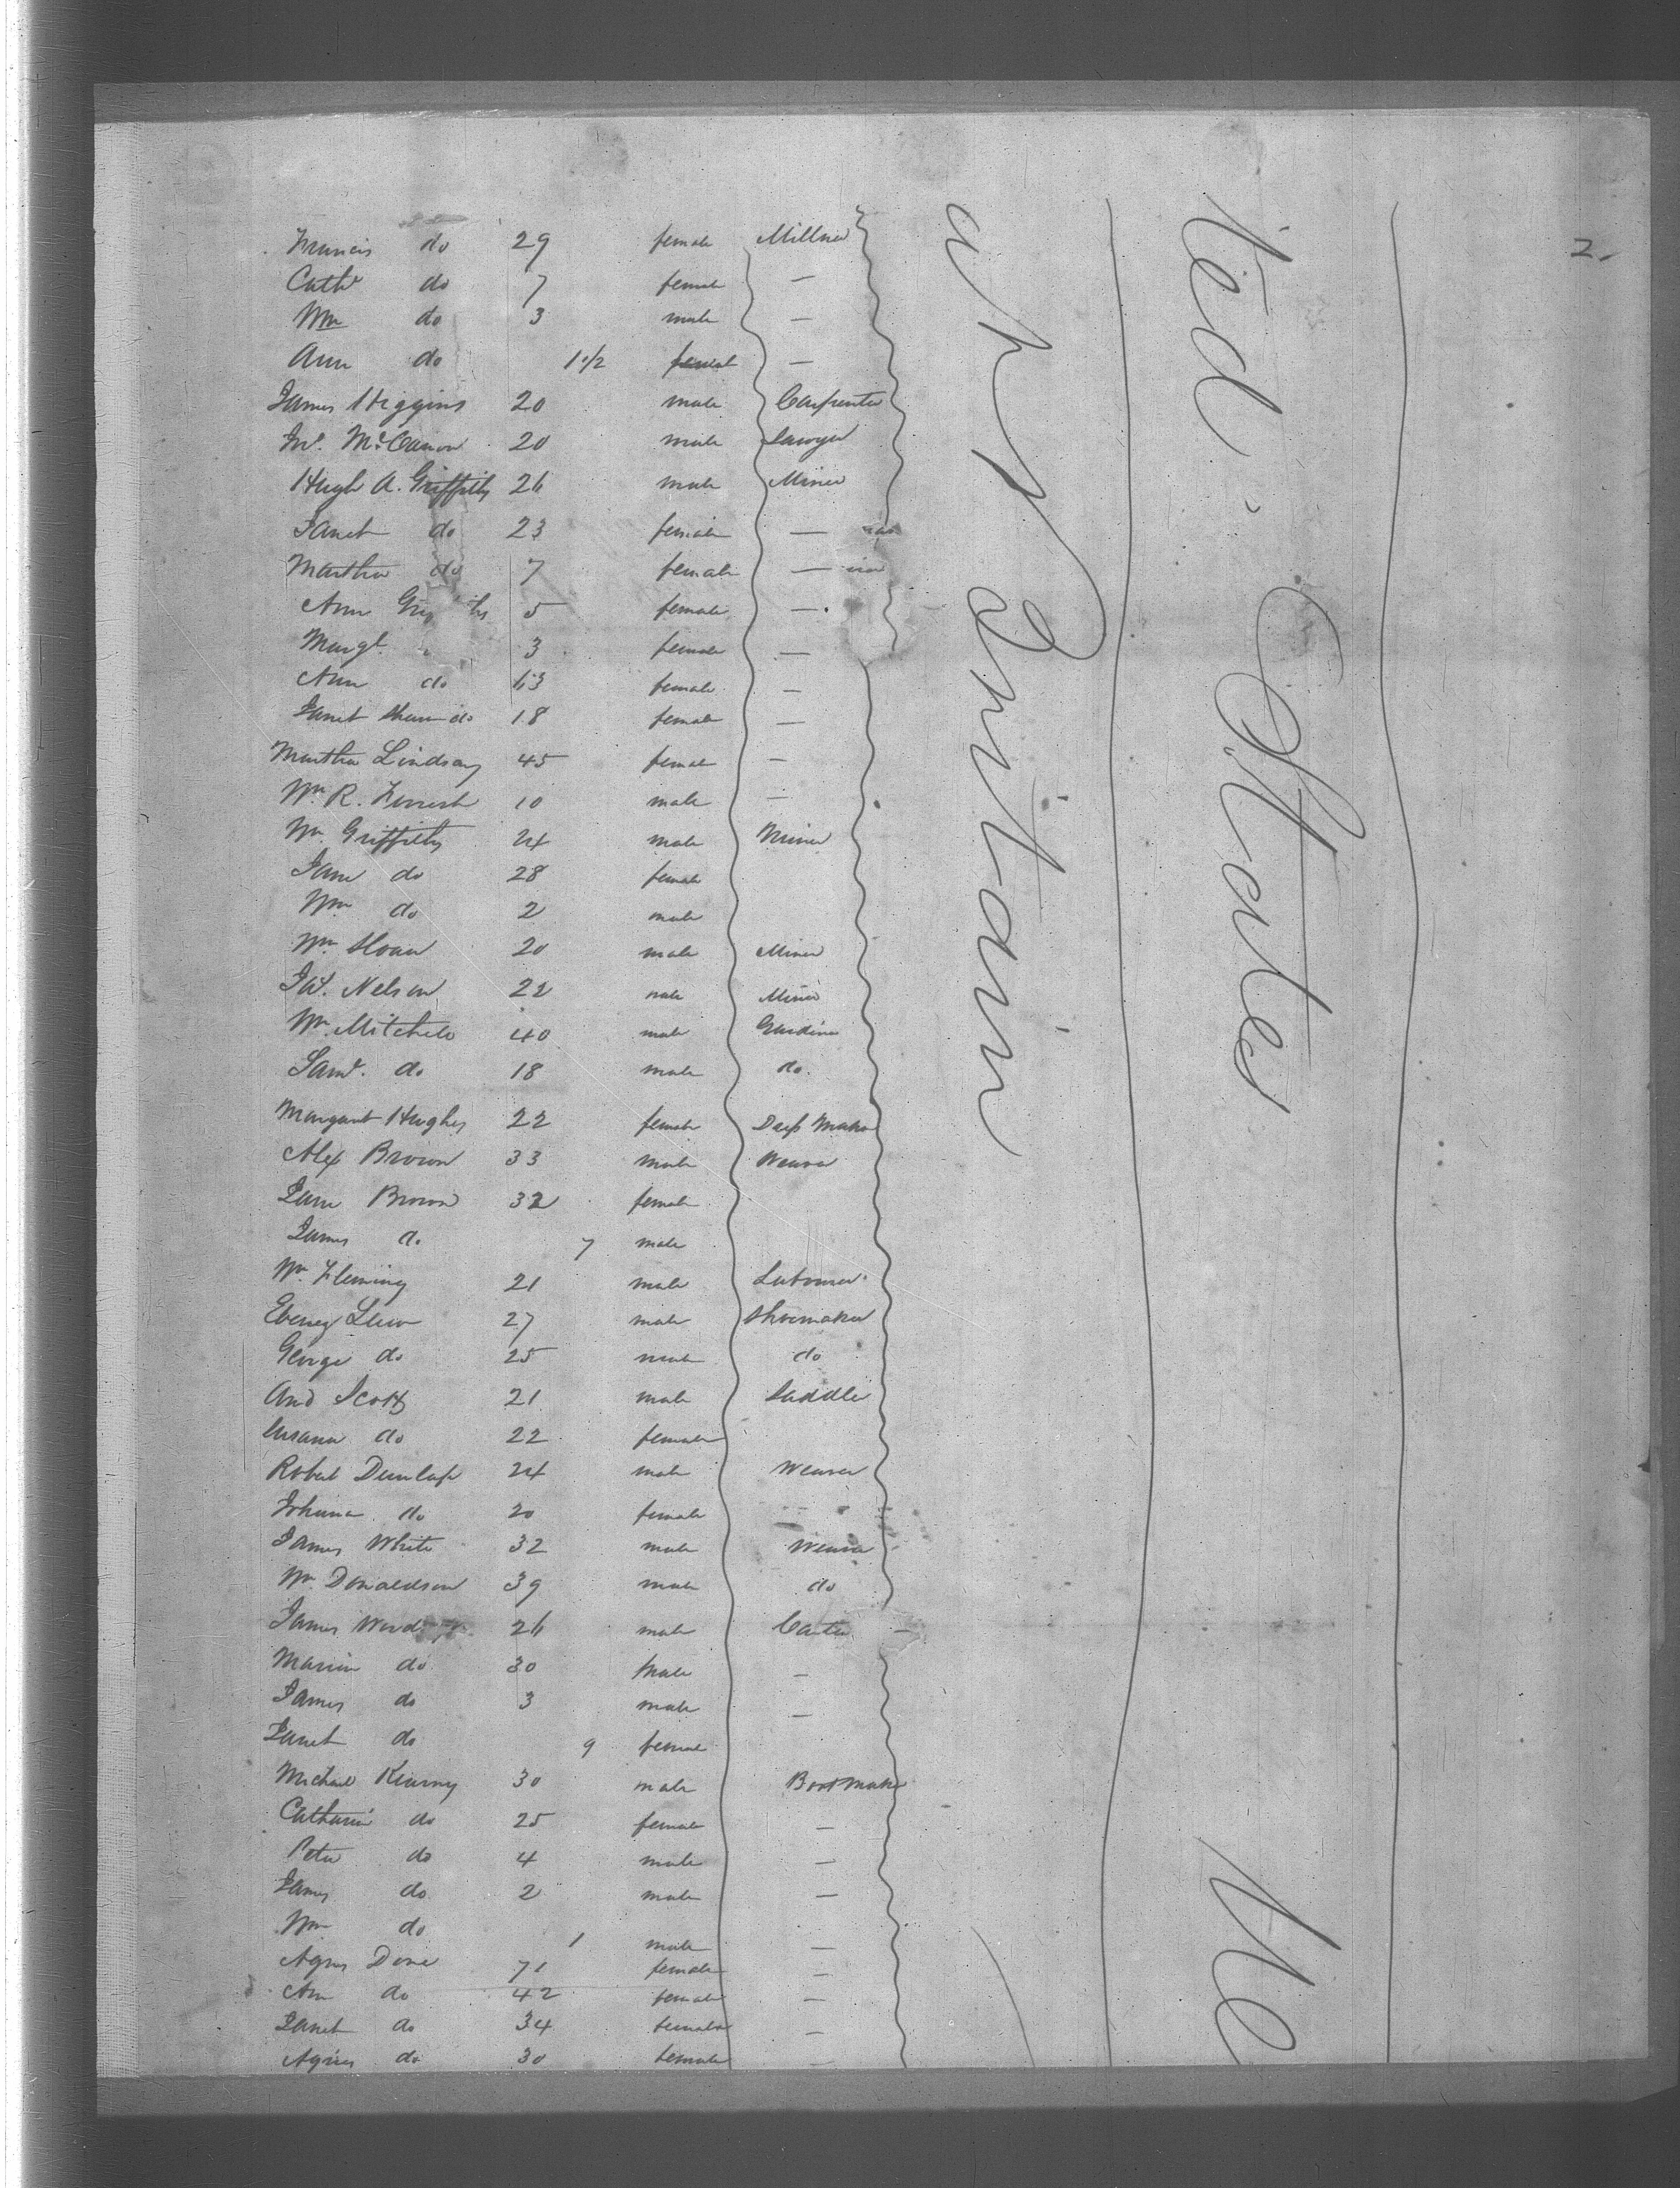 2.
Francis do 29 female Milliner
Cath do 7 female —
Wm do 3 male —
Ann do 1 1/2 female —
James Higgins 20 male Carpenter
Jno. McCannon 20 male Sawyer
Hugh A. Griffiths 26 male Miner
Janet do 23 female —
Martha do 7 female —
Ann 5 female —
Margt. 3 female —
Ann do 63 female —
Janet Shaw do 18 female —
Martha Lindsay 45 female —
Wm R. Forrest 10 male —
Wm Griffiths 24 male Miner
Jane do 28 female
Wm do 2 male
Wm Sloan 20 male Miner
Jas. Nelson 22 male Miner
Wm Mitchele 40 male Gardiner
Saml. do 18 male do.
Margaret Hughes 22 female Dress Maker
Alex Brown 33 male Weaver
Jane Brown 32 female
James do 7 male
Wm Fleming 21 male Labourer
Ebenez 27 male Shoemaker
George do 25 male do
And Scott 21 male Saddler
do 22 female
Robert Dunlap 24 male Weaver
Johana do 20 female
James White 32 male Weaver
Wm Donaldson 39 male do
James 26 male Carter —
Marion do 30 male —
James do 3 male —
Janet do 9 female
Michael Kearny 30 male Bootmaker
Catharin do 25 female —
Peter do 4 male —
James do 2 male —
Wm do 1 male —
Agnes Dove 71 female —
Ann do 42 female —
Janet do 34 female —
Agnes do 30 female —
Britain
ited States